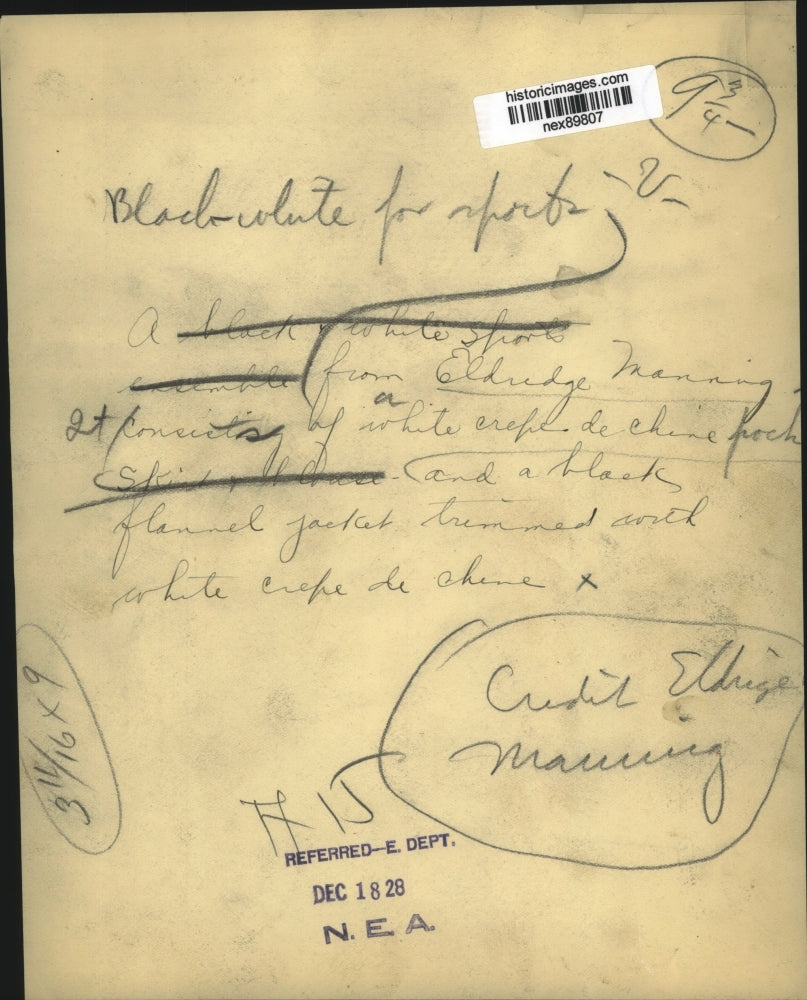 historicimages.com
nex89807
9 3/4 -
Black-white for sports - V -
A black & white sports
ensemble from Eldridge Manning
It consists of a white crepe de chine frock
skirt & blouse - and a black
flannel jacket trimmed with
white crepe de chine x
Credit Eldrige
Manning
3 11/16 x 9
REFERRED-E. DEPT.
DEC 18 28
N. E. A.